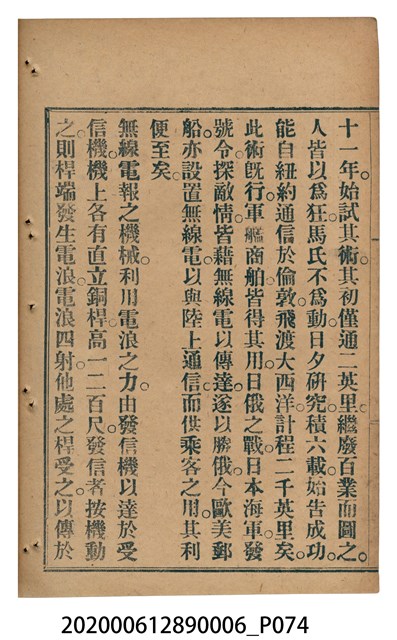 十一年。始試其術。其初僅通二英里。繼廢百業而圖之。
人皆以爲狂。馬氏不爲動。日夕硏究。積六載。始告成功。
能自紐約通信於倫敦。飛渡大西洋。計程二千英里矣。
此術旣行。軍艦商舶。皆得其用。日俄之戰。日本海軍發
號令。探敵情。皆藉無線電以傳達。遂以勝俄。今歐美郵
船。亦設置無線電。以與陸上通信。而供乘客之用。其利
便至矣。
無線電報之機械。利用電浪之力。由發信機以達於受
信機。機上各有直立銅桿。高一二百尺。發信者按機動
之。則桿端發生電浪。電浪四射。他處之桿受之。以傳於
202000612890006_P074